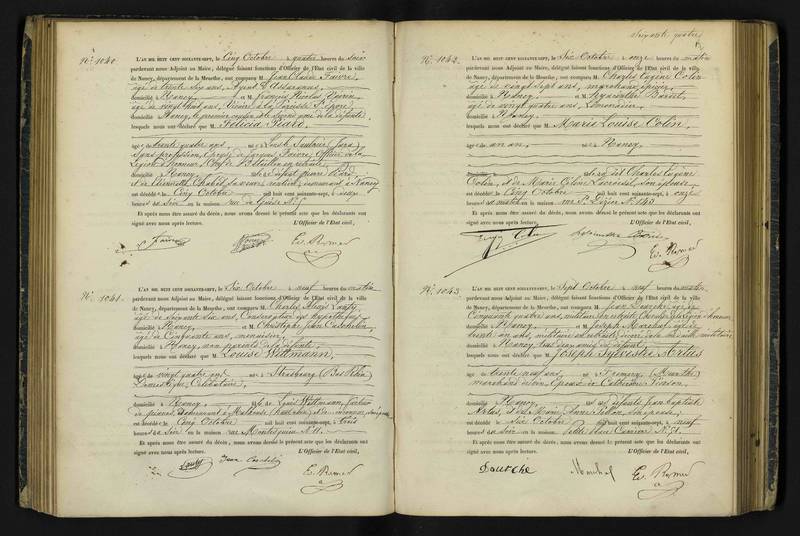 Soixante quatre
N° 1040
L'AN MIL HUIT CENT SOIXANTE-SEPT, le Cinq Octobre à quatre heures du soir
pardevant nous Adjoint au Maire, délégué faisant fonctions d'Officier de l'Etat civil de la ville
de Nancy, département de la Meurthe, ont comparu M. Jean Faivre,
âgé de trente six ans, Agent d'Assurances,
domicilié à Nancy, et François Nicolas
âgé de vingt huit ans, Vicaire à la Paroisse St Epvre,
domicilié à Nancy, le premier cousin et le second ami de la défunte,
lesquels nous ont déclaré que M. Félicia Piard,
âgée de trente quatre ans née à Lons le Saulnier (Jura)
Sans profession, Epouse de Jacques Faivre, Officier de la
Légion d'honneur, Chef de Bataillon en retraite,
domiciliée à Nancy, fille de défunt Pierre Piard,
et de Chabot, sa veuve, rentière, demeurant à Nancy
est décédée le Cinq Octobre mil huit cent soixante-sept, à deux
heures du soir en la maison rue de Guise N° 5
Et après nous être assuré du décès, nous avons dressé le présent acte que les déclarants ont
signé avec nous après lecture. L'Officier de l'Etat civil,
Faivre
N° 1041
L'AN MIL HUIT CENT SOIXANTE-SEPT, le Six Octobre à neuf heures du matin
pardevant nous Adjoint au Maire, délégué faisant fonctions d'Officier de l'Etat civil de la ville
de Nancy, département de la Meurthe, ont comparu M. Charles Alexis Lauty
âgé de soixante six ans, Conservation des hypothèques,
domicilié à Nancy, et Christophe Jean
âgé de Cinquante ans, menuisier,
domicilié à Nancy, non parents de la défunte,
lesquels nous ont déclaré que M. Louise Wittmann,
âgée de vingt quatre ans née à Strasbourg (Bas Rhin)
Domestique, Célibataire,
domiciliée à Nancy, fille de Louis Wittmann,
demeurant à Mulhouse (haut Rhin)
est décédée le Cinq Octobre mil huit cent soixante-sept, à trois
heures du soir en la maison rue Montesquieu N° 11
Et après nous être assuré du décès, nous avons dressé le présent acte que les déclarants ont
signé avec nous après lecture. L'Officier de l'Etat civil,
Lauty Jean
N° 1042
L'AN MIL HUIT CENT SOIXANTE-SEPT, le Six Octobre à onze heures du matin
pardevant nous Adjoint au Maire, délégué faisant fonctions d'Officier de l'Etat civil de la ville
de Nancy, département de la Meurthe, ont comparu M. Charles Eugène Colin
âgé de vingt sept ans, marchand épicier,
domicilié à Nancy, et
âgé de vingt quatre ans,
domicilié à Nancy,
lesquels nous ont déclaré que Marie Louise Colin,
âgée d'un an, née à Nancy,
fille du dit Charles Eugène
Colin, et de Marie Céline son épouse
est décédée le Cinq Octobre mil huit cent soixante-sept, à onze
heures du matin en la maison rue St Dizier N° 140
Et après nous être assuré du décès, nous avons dressé le présent acte que les déclarants ont
signé avec nous après lecture. L'Officier de l'Etat civil,
Colin
N° 1043
L'AN MIL HUIT CENT SOIXANTE-SEPT, le Sept Octobre à neuf heures du matin
pardevant nous Adjoint au Maire, délégué faisant fonctions d'Officier de l'Etat civil de la ville
de Nancy, département de la Meurthe, ont comparu M. Jean âgé de
Cinquante quatre ans, militaire en retraite, Chevalier de la Légion d'honneur,
domicilié à Nancy, et Joseph Marchal âgé de
trente un ans, militaire en retraite, décoré de la médaille militaire
domicilié à Nancy, tous deux amis du défunt,
lesquels nous ont déclaré que Joseph Sylvestre
âgé de trente neuf ans, né à (Meurthe)
marchand de vin, Epoux de Catherine
domicilié à Nancy, fils de défunts Jean Baptiste
et de Anne son épouse
est décédé le Six Octobre mil huit cent soixante-sept, à neuf
heures du soir en la maison N° 51
Et après nous être assuré du décès, nous avons dressé le présent acte que les déclarants ont
signé avec nous après lecture. L'Officier de l'Etat civil,
Marchal